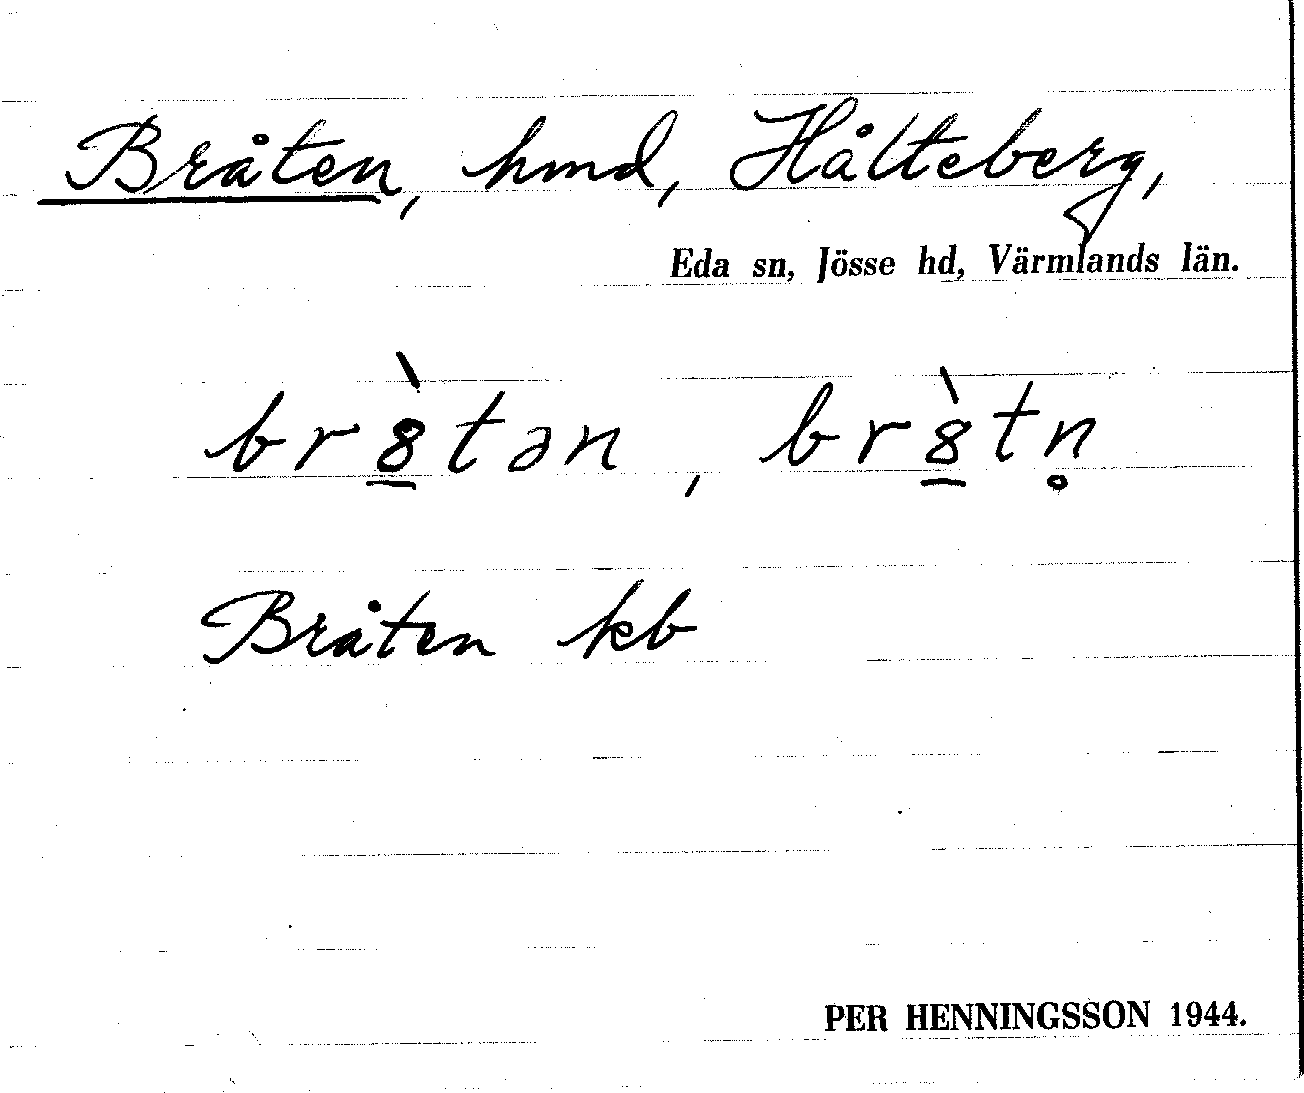 Bråten, hmd, Hålteberg,
Eda sn, Jösse hd, Värmlands län.
br8̱̀tən, br8̱̀tn̥
Bråten kb
PER HENNINGSSON 1944.